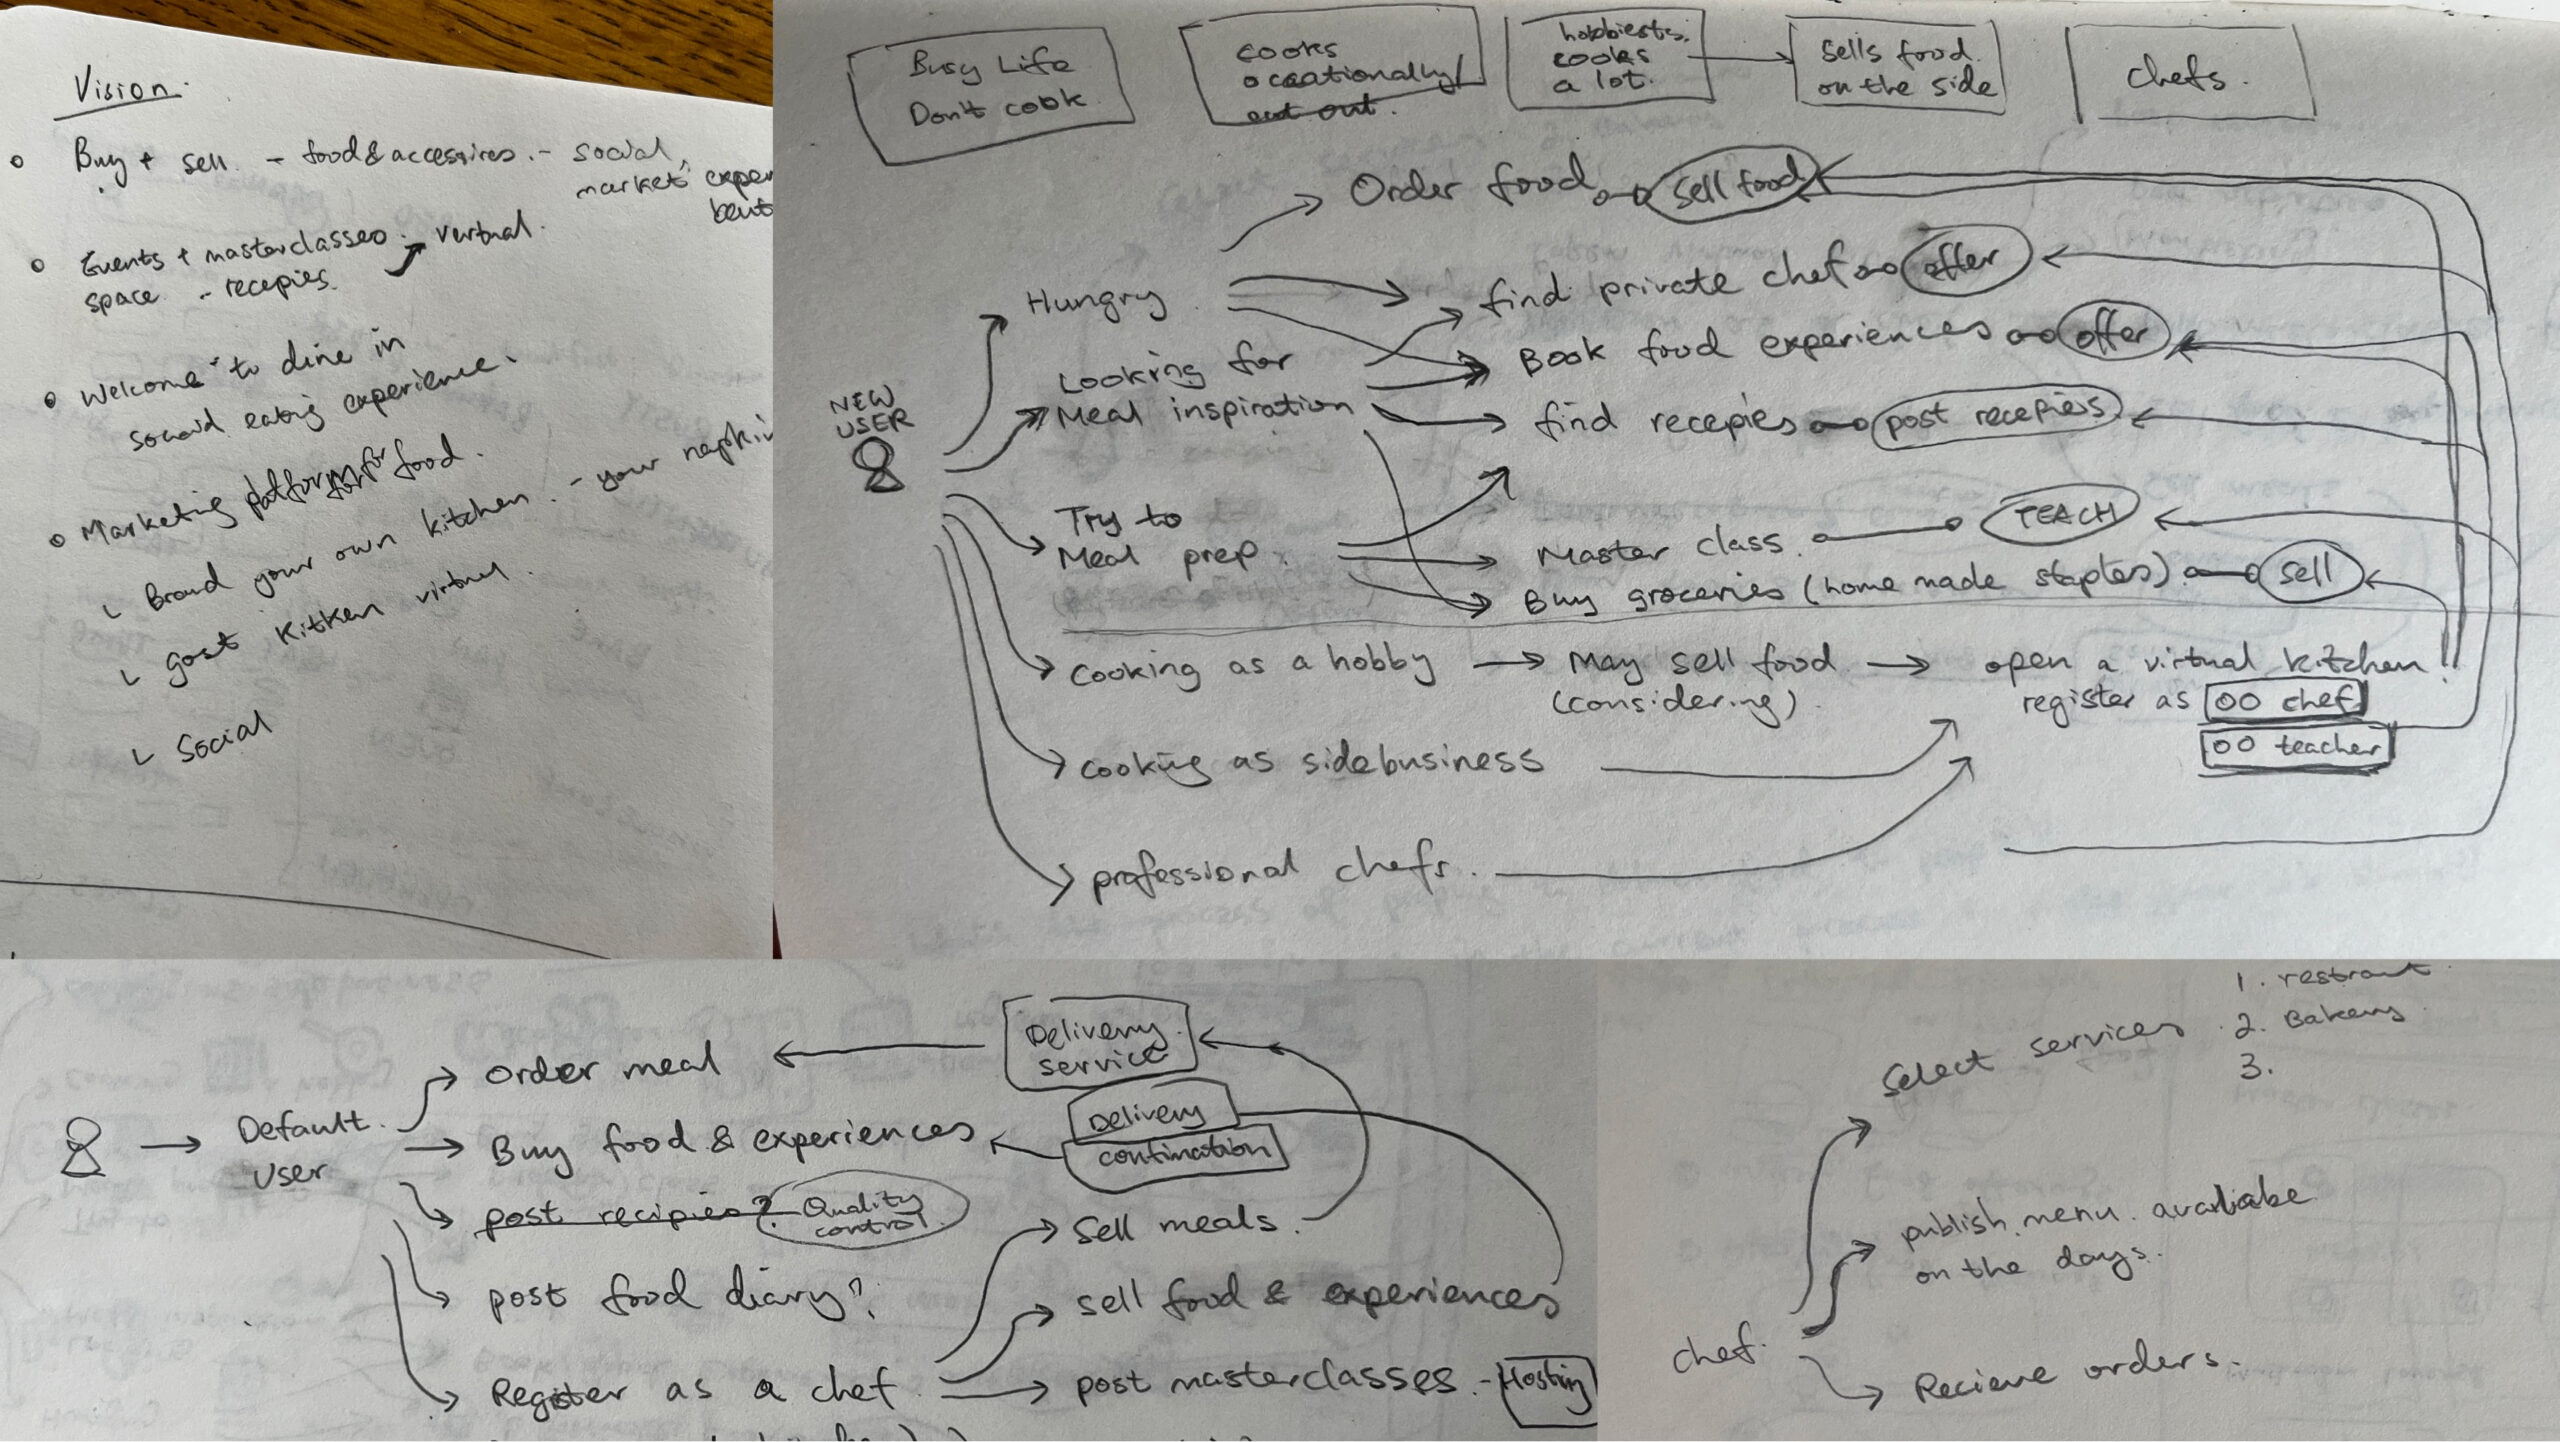 Vision.
Buy + sell - food & accessires. - social,
market, exper
Events + masterclasses. vertual.
space - recepies.
Welcome to dine in
eating experience.
Marketing platform for food.
└ Brand your own kitchen. - your napkin
└ gost kitken virtual.
└ Social
Busy Life
Don't cook
cooks
occationally/
eat out.
hobbiests.
cooks
a lot.
sells food
on the side
chefs.
Order food sell food
Hungry
find private chef offer
Book food experiences offer
Looking for
Meal inspiration
find recepies post recepies
NEW
USER
Try to
Meal prep.
Master class. TEACH
Buy groceries (home made staples) sell
cooking as a hobby → May sell food → open a virtual kitchen
(considering) register as OO chef
OO teacher
cooking as sidebusiness
professional chefs.
Delivery
service
order meal
Default
User
Buy food & experiences
Delivery
contimation
post recipies? Quality
control
Sell meals.
post food diary?
sell food & experiences
Register as a chef
post masterclasses. - Hosting
1. restrant
Select services 2. Bakery
3.
publish menu. avaliabe
on the days.
chef.
Recieve orders.